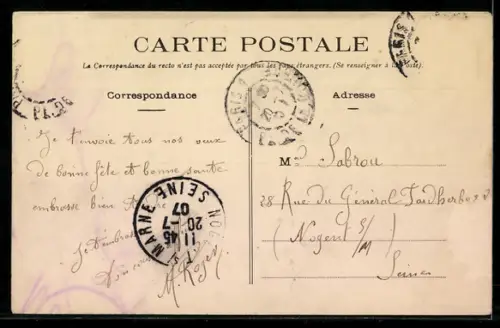 CARTE POSTALE
La Correspondance du recto n'est pas acceptée par tous les pays étrangers. (Se renseigner à la Poste).
Correspondance
Adresse
Je t'envoie tous nos vœux
de bonne fête et bonne santé
embrasse bien
Je t'embrasse
M. Roger
M. Sabrou
28 Rue du Général Faidherbe
(Nogent s/M
Seine
NOGENT S MARNE SEINE
11 45
20 -7
07
PARIS
PARIS